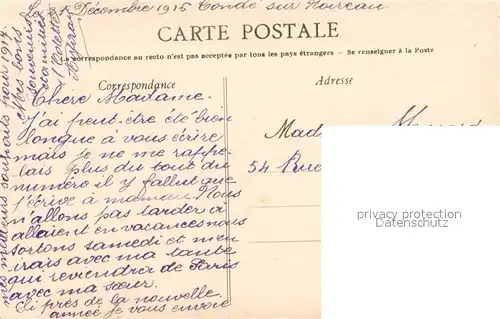 Le 21 Décembre 1915 Condé sur Noireau
CARTE POSTALE
La correspondance au recto n'est pas acceptée par tous les pays étrangers – Se renseigner à la Poste
Correspondance
Adresse
Chère Madame.
J'ai peut-être été bien
longue à vous écrire
mais je ne me rappe-
lais plus du tout du
numéro il y fallut que
j'écrive à maman. Nous
n'allons pas tarder à
allaient en vacances nous
sortons samedi et m'en
irais avec ma tante
qui reviendra de Paris
avec ma sœur.
Si près de la nouvelle
année je vous envoie
mes meilleurs souhaits pour 1917.
Mes bons
souvenirs
Mad
54 Rue
privacy protection
Datenschutz